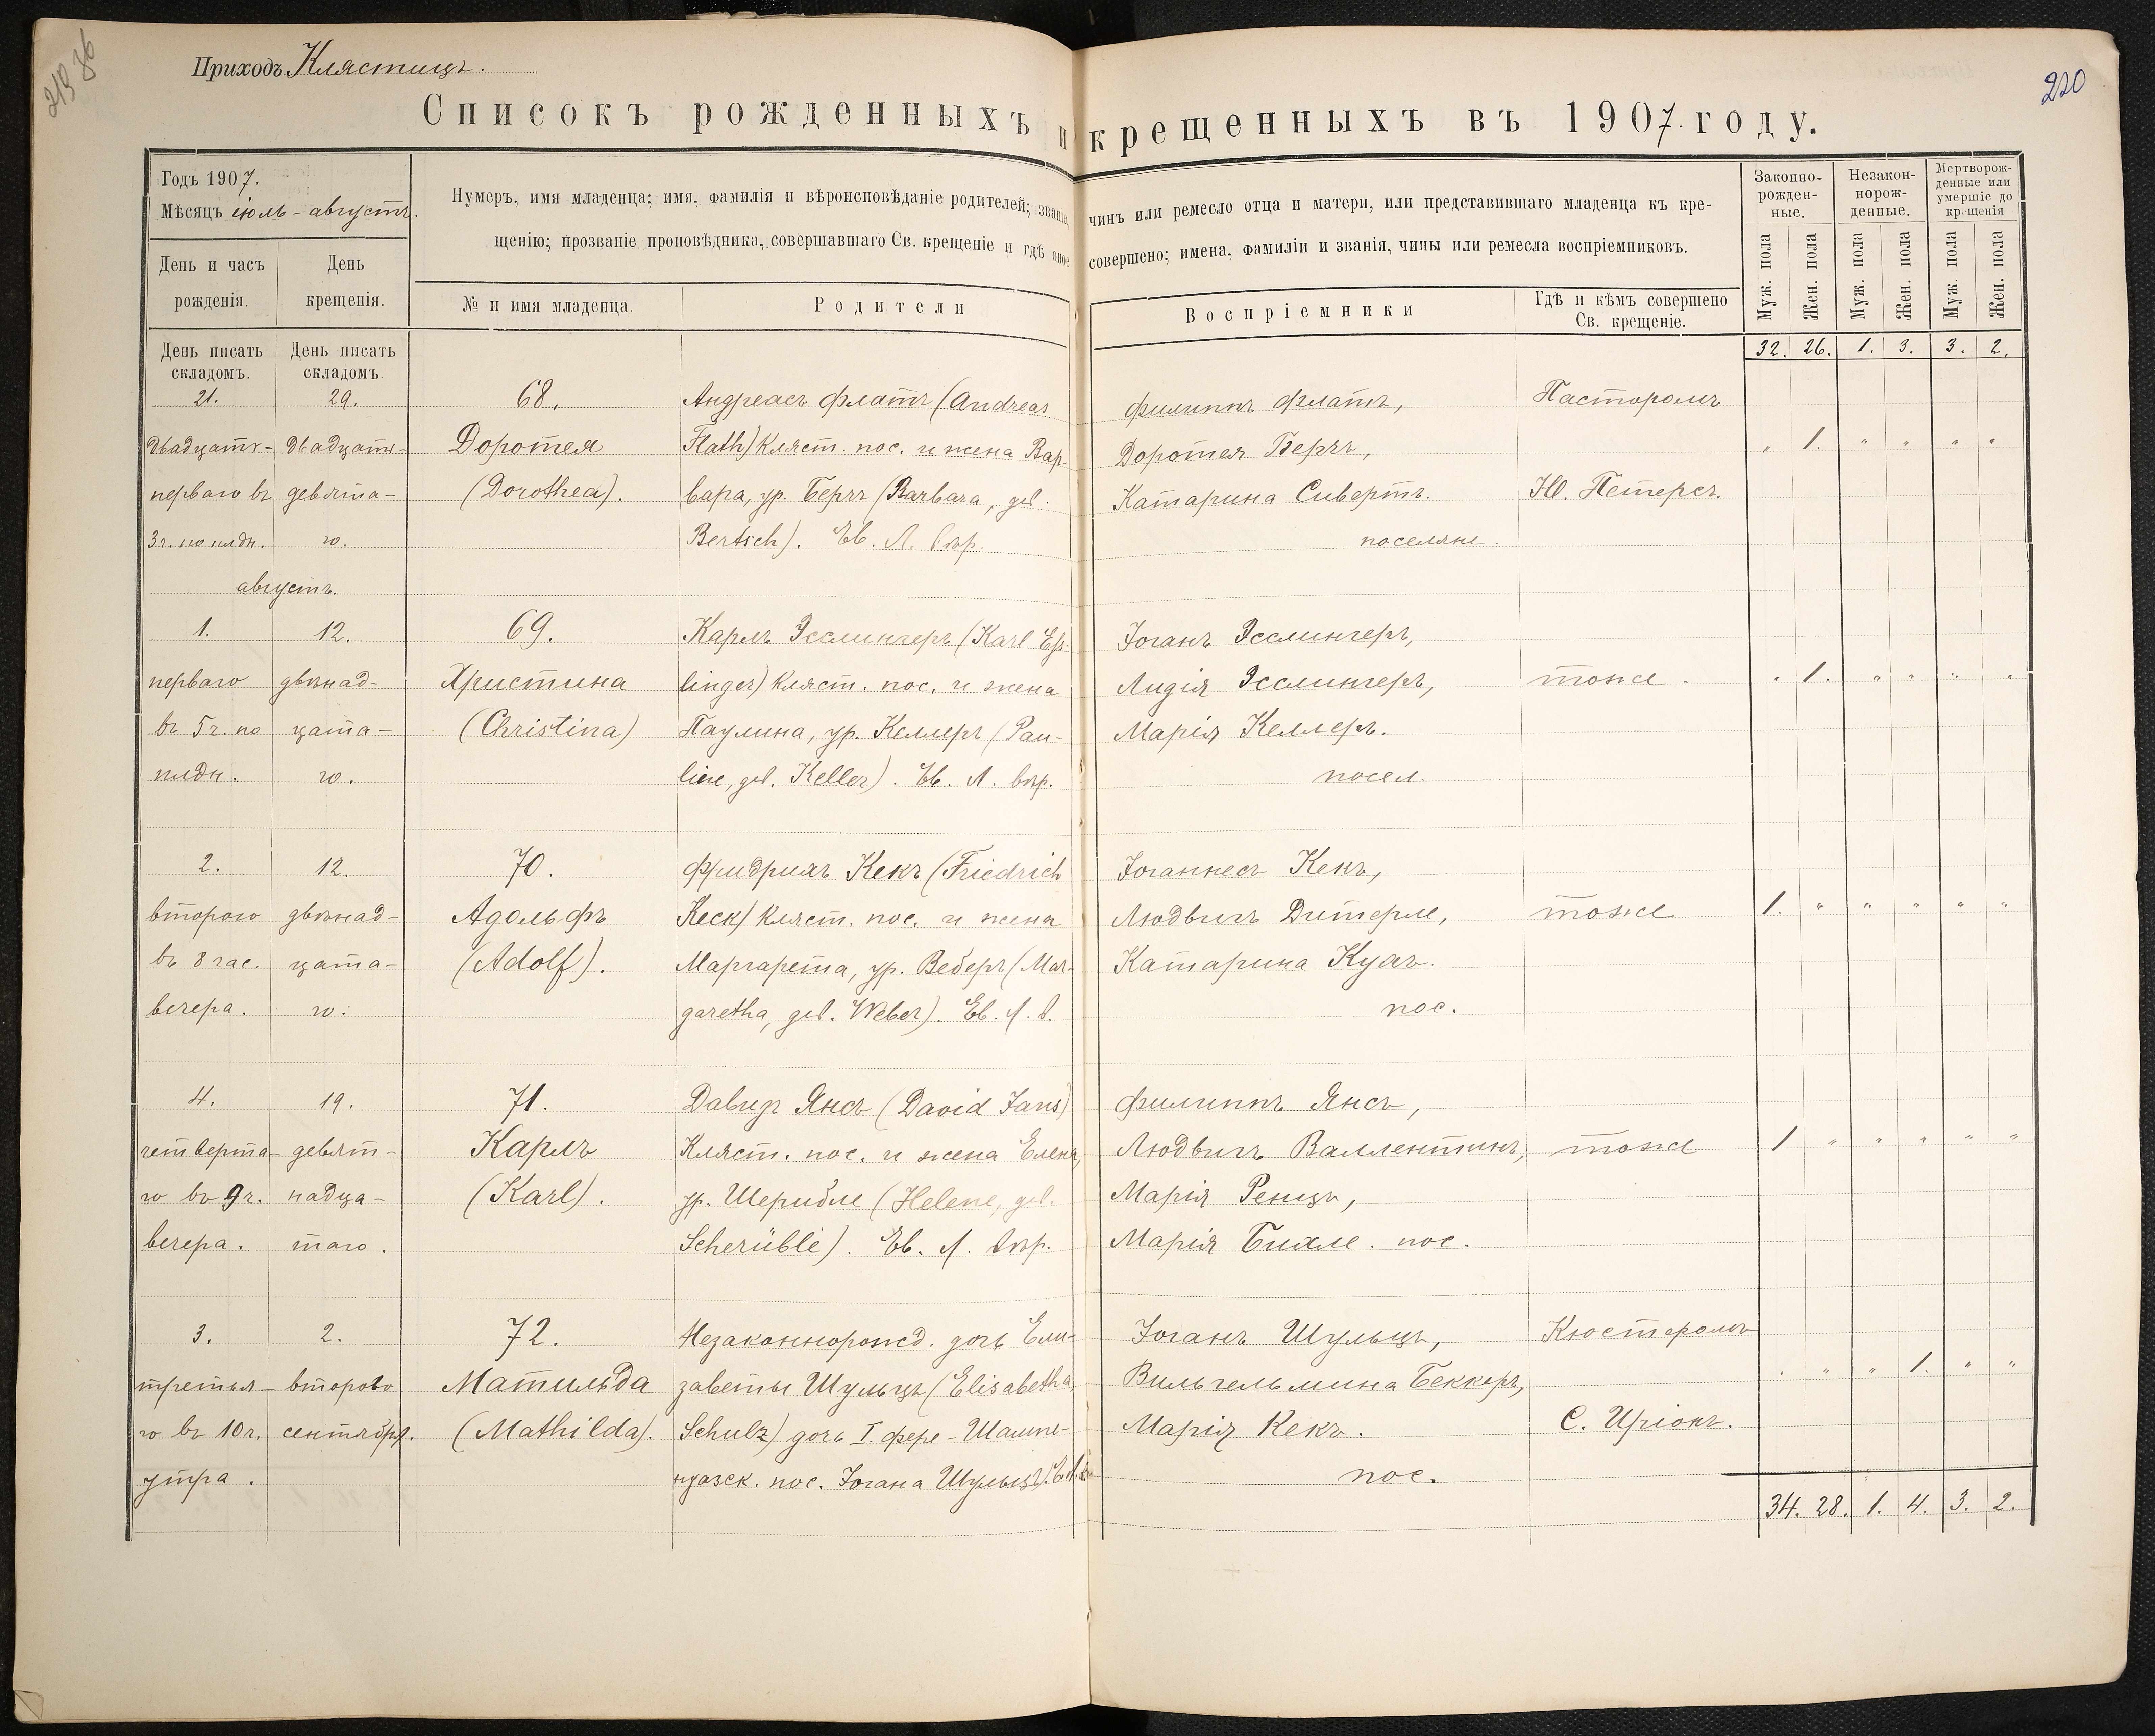 220
Приходъ Клястицъ.
Списокъ рожденныхъ и крещенныхъ въ 1907. году.
Годъ 1907.
Мѣсяцъ іюль - августъ.
Нумеръ, имя младенца; имя, фамилія и вѣроисповѣданіе родителей; званіе, чинъ или ремесло отца и матери, или представившаго младенца къ кре-
щенію; прозваніе проповѣдника, совершавшаго Св. крещеніе и гдѣ оное совершено; имена, фамиліи и званія, чины или ремесла воспріемниковъ.
Законно-
рожден-
ные.
Незакон-
норож-
денные.
Мертворож-
денные или
умершіе до
крещенія
День и часъ
рожденія.
День
крещенія.
№ и имя младенца.
Родители
Воспріемники
Гдѣ и кѣмъ совершено
Св. крещеніе.
Муж. пола
Жен. пола
Муж. пола
Жен. пола
Муж. пола
Жен. пола
День писать
складомъ.
День писать
складомъ.
32. 26. 1. 3. 3. 2.
21.
двадцать-
перваго въ
3 ч. по плдн.
29.
двадцать-
девята-
го.
68.
Доротея
(Dorothea).
Андреасъ Флатъ (Andreas
Flath) Кляст. пос. и жена Вар-
вара, ур. Берчъ (Barbara, geb.
Bertsch). Ев. Л. вѣр.
Филиппъ Флатъ,
Доротея Берчъ,
Катарина Сивертъ.
поселяне.
Пасторомъ
Ю. Петерсъ.
" 1. " " " "
августъ.
1.
перваго
въ 5 ч. по
плдн.
12.
двѣнад-
цата-
го.
69.
Христина
(Christina)
Карлъ Эсслингеръ (Karl Eß-
linger) Кляст. пос. и жена
Паулина, ур. Келлеръ (Pau-
line, geb. Keller). Ев. Л. вѣр.
Іоганъ Эсслингеръ,
Лидія Эсслингеръ,
Марія Келлеръ.
посел.
тоже
" 1. " " " "
2.
второго
въ 8 час.
вечера.
12.
двѣнад-
цата-
го.
70.
Адольфъ
(Adolf).
Фридрихъ Кекъ (Friedrich
Keck) Кляст. пос. и жена
Маргарета, ур. Веберъ (Mar-
garetha, geb. Weber). Ев. Л. в.
Іоганнесъ Кекъ,
Людвигъ Дитерле,
Катарина Кухъ.
пос.
тоже
1. " " " " "
4.
четверта-
го въ 9 ч.
вечера.
19.
девят-
надца-
таго.
71.
Карлъ
(Karl).
Давидъ Янсъ (David Jans)
Кляст. пос. и жена Елена,
ур. Шерибле (Helene, geb.
Scherüble). Ев. Л. вѣр.
Филиппъ Янсъ,
Людвигъ Валлентинъ,
Марія Ренцъ,
Марія Бихле. пос.
тоже
1 " " " " "
3.
третья-
го въ 10 ч.
утра.
2.
второго
сентября.
72.
Матильда
(Mathilda).
Незаконнорожд. дочь Ели-
заветы Шульцъ (Elisabetha
Schulz) дочь I. Фере-Шампе-
нуазск. пос. Іогана Шульцъ.
Іоганъ Шульцъ,
Вильгельмина Беккеръ,
Марія Кекъ.
пос.
Кюстеромъ
С. Иріонъ.
" " " 1. " "
34. 28. 1. 4. 3. 2.